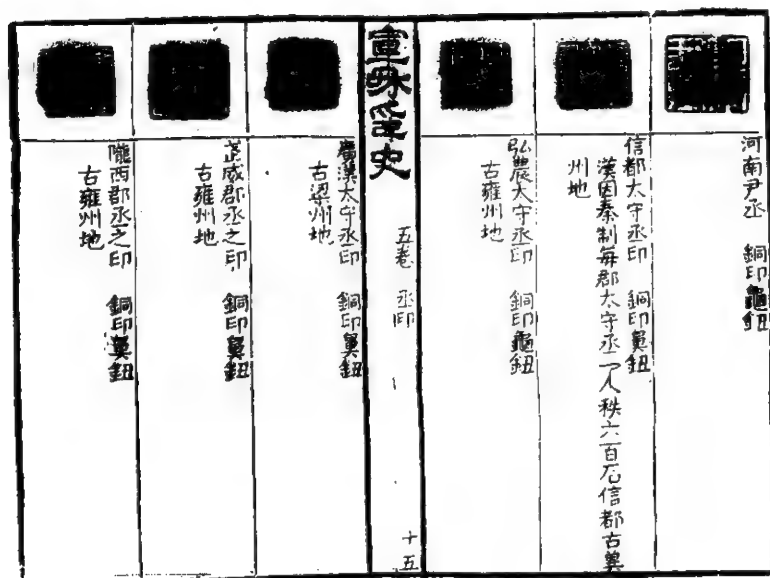 河南尹丞 銅印龜鈕
信都太守丞印 銅印鼻鈕
漢因秦制每郡太守丞一人秩六百石信都古冀
州地
弘農太守丞印 銅印龜鈕
古雍州地
史
五卷 丞印
十五
廣漢太守丞印 銅印鼻鈕
古梁州地
武威郡丞之印 銅印鼻鈕
古雍州地
隴西郡丞之印 銅印鼻鈕
古雍州地